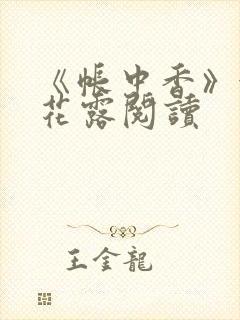 《帳中香》
花露閱讀
王金龍